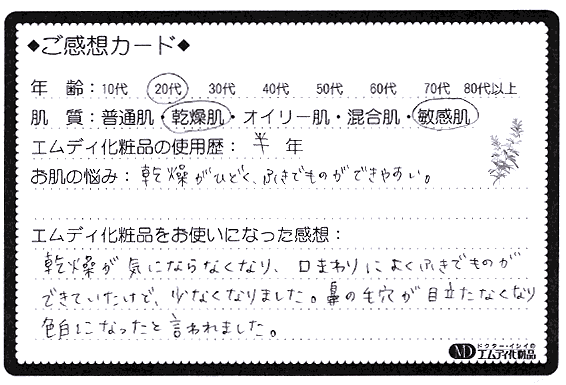 ◆ご感想カード◆
年 齢：10代 20代 30代 40代 50代 60代 70代 80代以上
肌 質：普通肌・乾燥肌・オイリー肌・混合肌・敏感肌
エムディ化粧品の使用歴：半 年
お肌の悩み：乾燥がひどく、ふきでものができやすい。
エムディ化粧品をお使いになった感想：
乾燥が気にならなくなり、口まわりによくふきでものが
できていたけど、少なくなりました。鼻の毛穴が目立たなくなり
色白になったと言われました。
MD ドクター・イシイの
エムディ化粧品